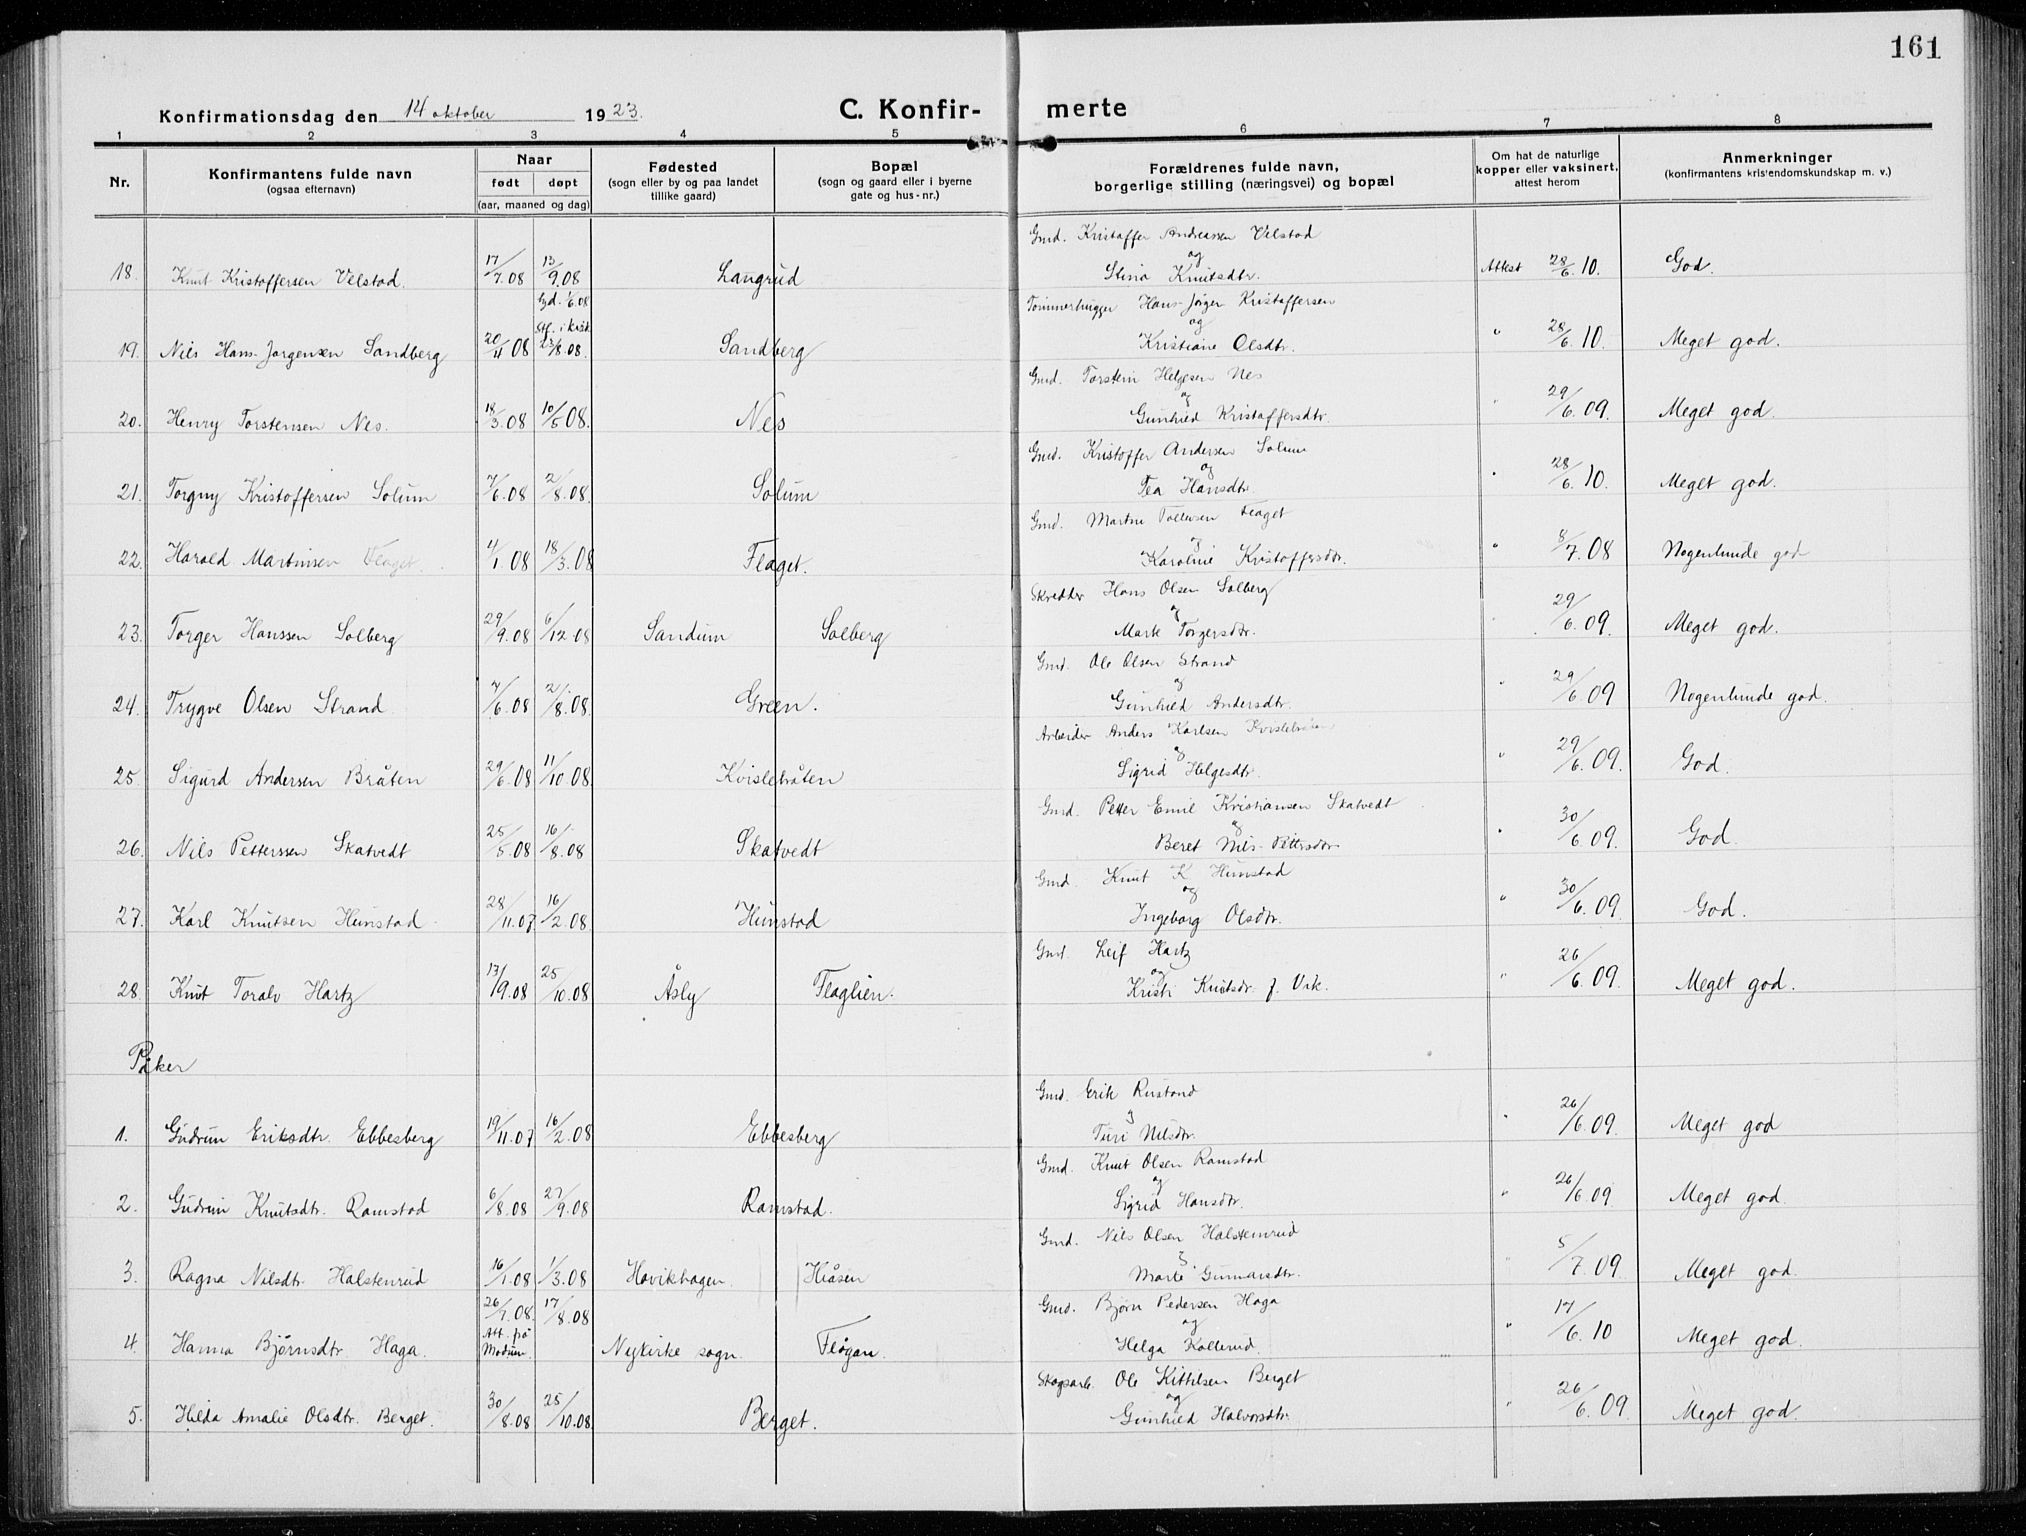 161
Konfirmationsdag den 14 oktober 1923.
C. Konfir- merte
1 2 3 4 5 6 7 8
Nr.
Konfirmantens fulde navn
(ogsaa efternavn)
Naar
født døpt
(aar, maaned og dag)
Fødested
(sogn eller by og paa landet
tillike gaard)
Bopæl
(sogn og gaard eller i byerne
gate og hus-nr.)
Forældrenes fulde navn,
borgerlige stilling (næringsvei) og bopæl
Om hat de naturlige
kopper eller vaksinert,
attest herom
Anmerkninger
(konfirmantens kristendomskundskap m. v.)
Gmd. Kristoffer Andreassen Velstad
og
18. Knut Kristoffersen Velstad. 17/7.08 13/9.08 Langrud Stina Knutsdtr. Attest 28/6.10. God.
Tømmerhugger Hans-Jørgen Kristoffersen
og
19. Nils Hans-Jørgensen Sandberg 20/4 08 23/8.08. Sandberg Kristiane Olsdtr. " 28/6.10. Meget god.
Gmd. Torstein Helgesen Nes
og
20. Henry Torstensen Nes. 18/3.08 10/5 08. Nes Gunhild Kristoffersdtr. " 29/6.09. Meget god.
Gmd. Kristoffer Andersen Solum
og
21. Torgny Kristoffersen Solum 7/6.08 2/8.08. Solum Tea Hansdtr. " 28/6.10. Meget god.
Gmd. Martin Tollefsen Flaget
og
22. Harald Martinsen Flaget. 4/1.08 18/3.08 Flaget. Karoline Kristoffersdtr. " 8/7.08 Nogenlunde god
Skredder Hans Olsen Solberg
og
23. Torger Hanssen Solberg 29/9.08 6/12.08 Sandum Solberg Marte Torgersdtr. " 29/6.09. Meget god.
Gmd. Ole Olsen Strand
og
24. Trygve Olsen Strand 7/6.08 2/8.08. Green. Gunhild Andersdtr. " 29/6.09 Nogenlunde god.
Arbeider Anders Karlsen Kvislebråten
og
25 Sigurd Andersen Bråten 29/6.08 11/10.08. Kvislebråten Sigrid Helgesdtr. " 29/6.09. God.
Gmd. Petter Emil Kristiansen Skatvedt
og
26. Nils Petterssen Skatvedt 25/5.08 16/8.08 Skatvedt Beret Nils-Pettersdtr. " 30/6.09. God.
Gmd. Knut K Hunstad
og
27. Karl Knutsen Hunstad 28/11.07 16/2.08. Hunstad Ingeborg Olsdtr. " 30/6.09. God.
Gmd. Leif Hartz
og
28. Knut Toralv Hartz 13/9.08 25/10.08 Åsly Flaglien. Kristi Knutsdr. f. Vik. " 26/6.09. Meget god.
Piker
Gmd. Erik Rustand
og
1. Gudrun Eriksdtr. Ebbesberg 19/11.07 16/2.08 Ebbesberg Turi Nilsdtr. " 26/6.09. Meget god
Gmd. Knut Olsen Ramstad
og
2. Gudrun Knutsdtr. Ramstad 6/8.08 27/9.08 Ramstad. Sigrid Hansdtr. " 26/6.09 Meget god.
Gmd. Nils Olsen Halstenrud
og
3. Ragna Nilsdtr. Halstenrud 16/1.08 1/3.08 Hovikhagen. Hiåsen Marte Gunnarsdtr. " 5/7.09. Meget god.
26/7.08. 17/8.08 Gmd. Bjørn Pedersen Haga
Att. fra og
4. Hanna Bjørnsdtr. Haga. Modum. Nykirke sogn. Flågan. Helga Kollerud. " 17/6.10 Meget god.
Skogsarb. Ole Kittilsen Berget
og
5. Hilda Amalie Olsdtr. Berget. 30/8.08 25/10.08. Berget. Gunhild Halvorsdtr. " 26/6.09. Meget god.